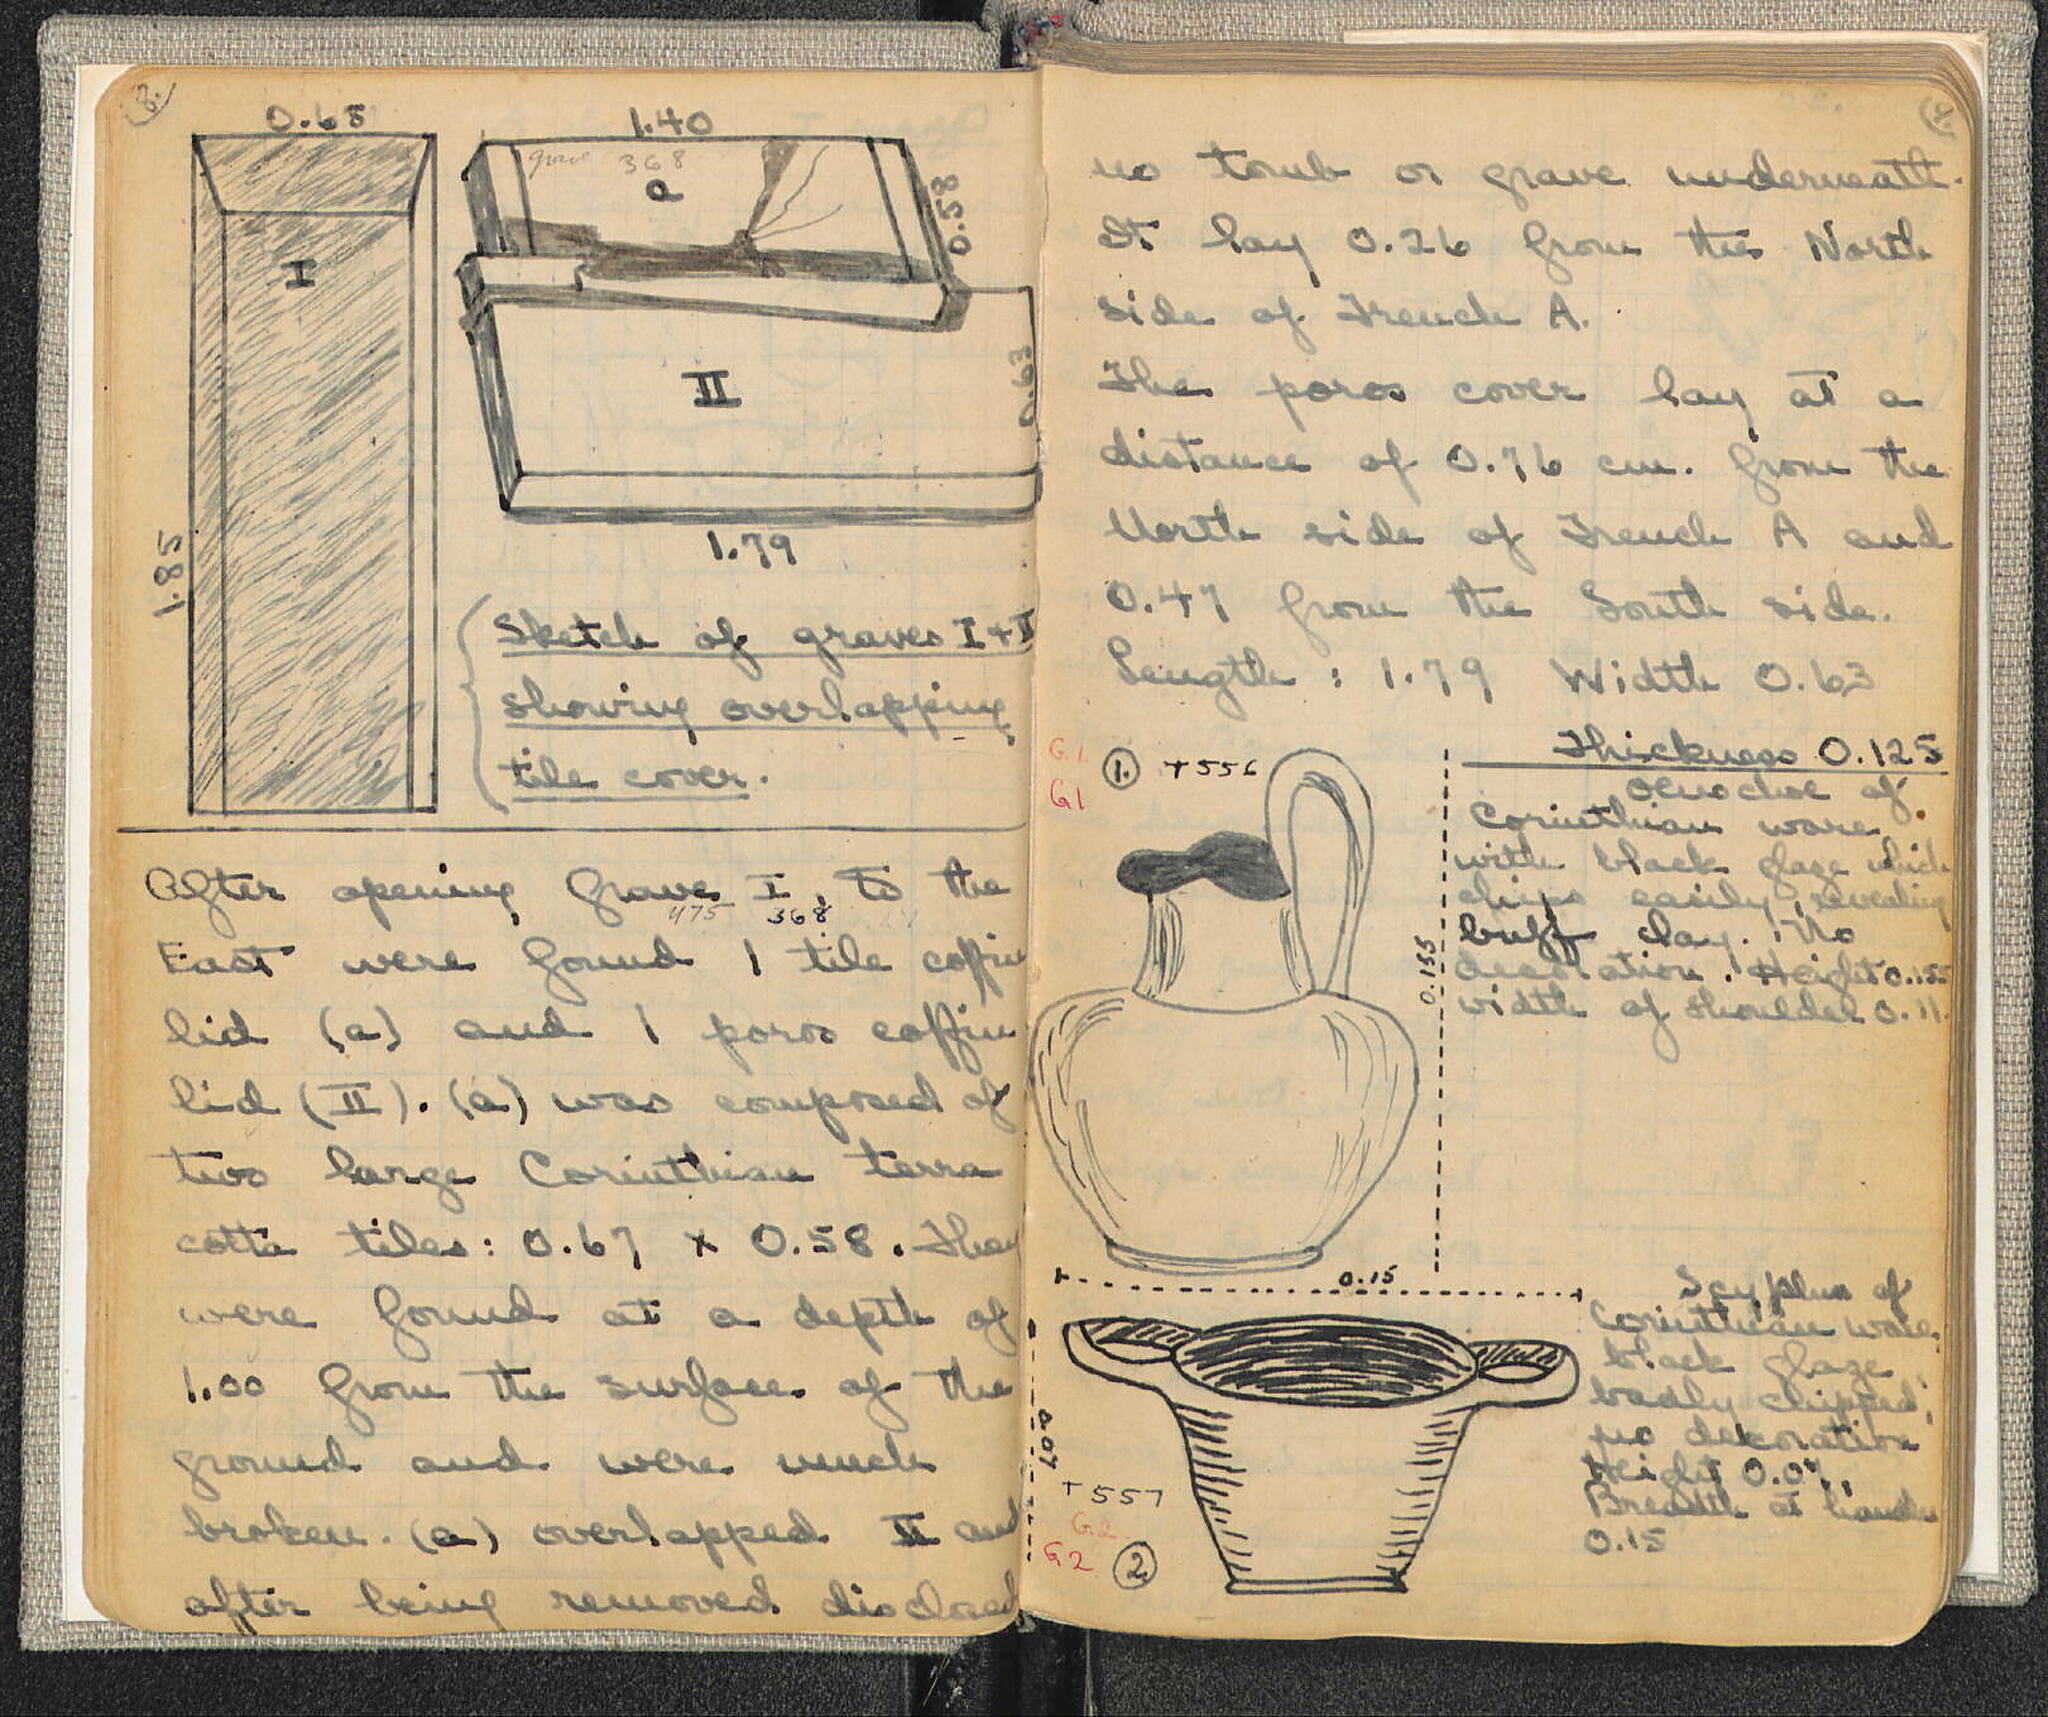 8.
0.68
1.40
grave 368
a
0.58
I
II
0.63
1.85
1.79
Sketch of graves I + II
showing overlapping
tile cover.
After opening Grave I, to the
475 368
East were found 1 tile coffin
lid (a) and 1 poros coffin
lid (II). (a) was composed of
two large Corinthian terra
cotta tiles: 0.67 x 0.58. They
were found at a depth of
1.00 from the surface of the
ground and were much
broken. (a) overlapped II and
after being removed disclosed
no tomb or grave underneath.
It lay 0.26 from the North
side of Trench A.
The poros cover lay at a
distance of 0.76 cm. from the
North side of Trench A and
0.47 from the South side.
Length: 1.79 Width 0.63
Thickness 0.125
G1
G1
1. T556
Oenochoe of
Corinthian ware
with black glaze which
chips easily, revealing
buff clay. No
decoration. Height 0.155
width of shoulder 0.11.
0.155
0.15
Scyphus of
Corinthian ware.
black glaze
badly chipped;
no dekoration
Height 0.07,
Breadth at handles
0.15
0.07
T557
G2
G2
2.